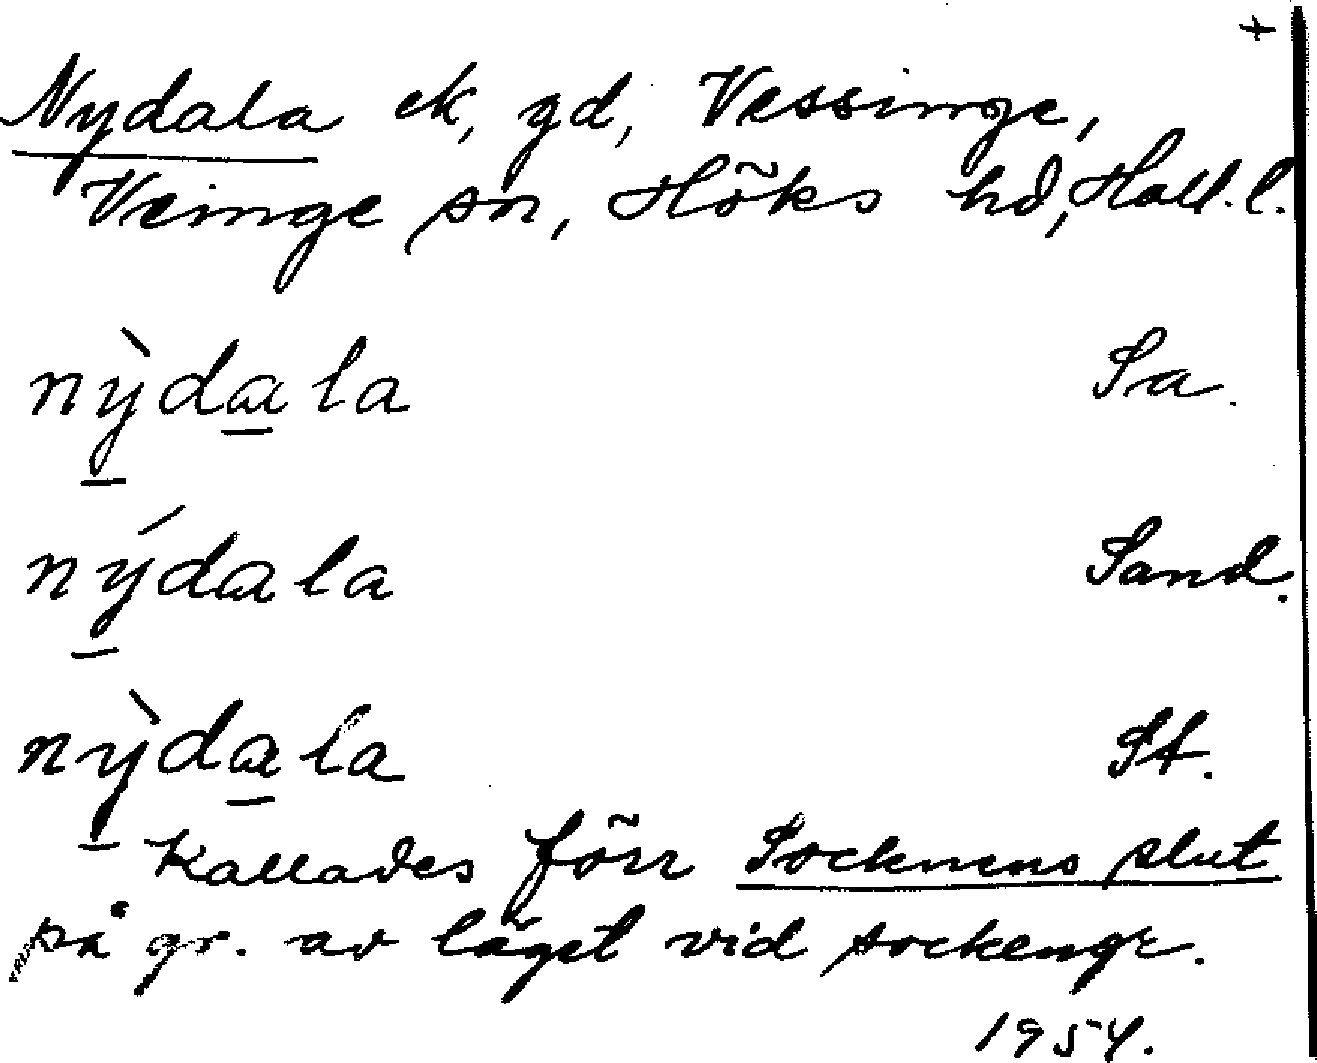 +
Nydala ek, gd, Vessinge,
Veinge sn, Höks hd, Hall. l.
nỳdala Sa.
nýdala Sand.
nỳdala St.
Kallades förr Socknens slut
på gr. av läget vid sockengr.
1954.